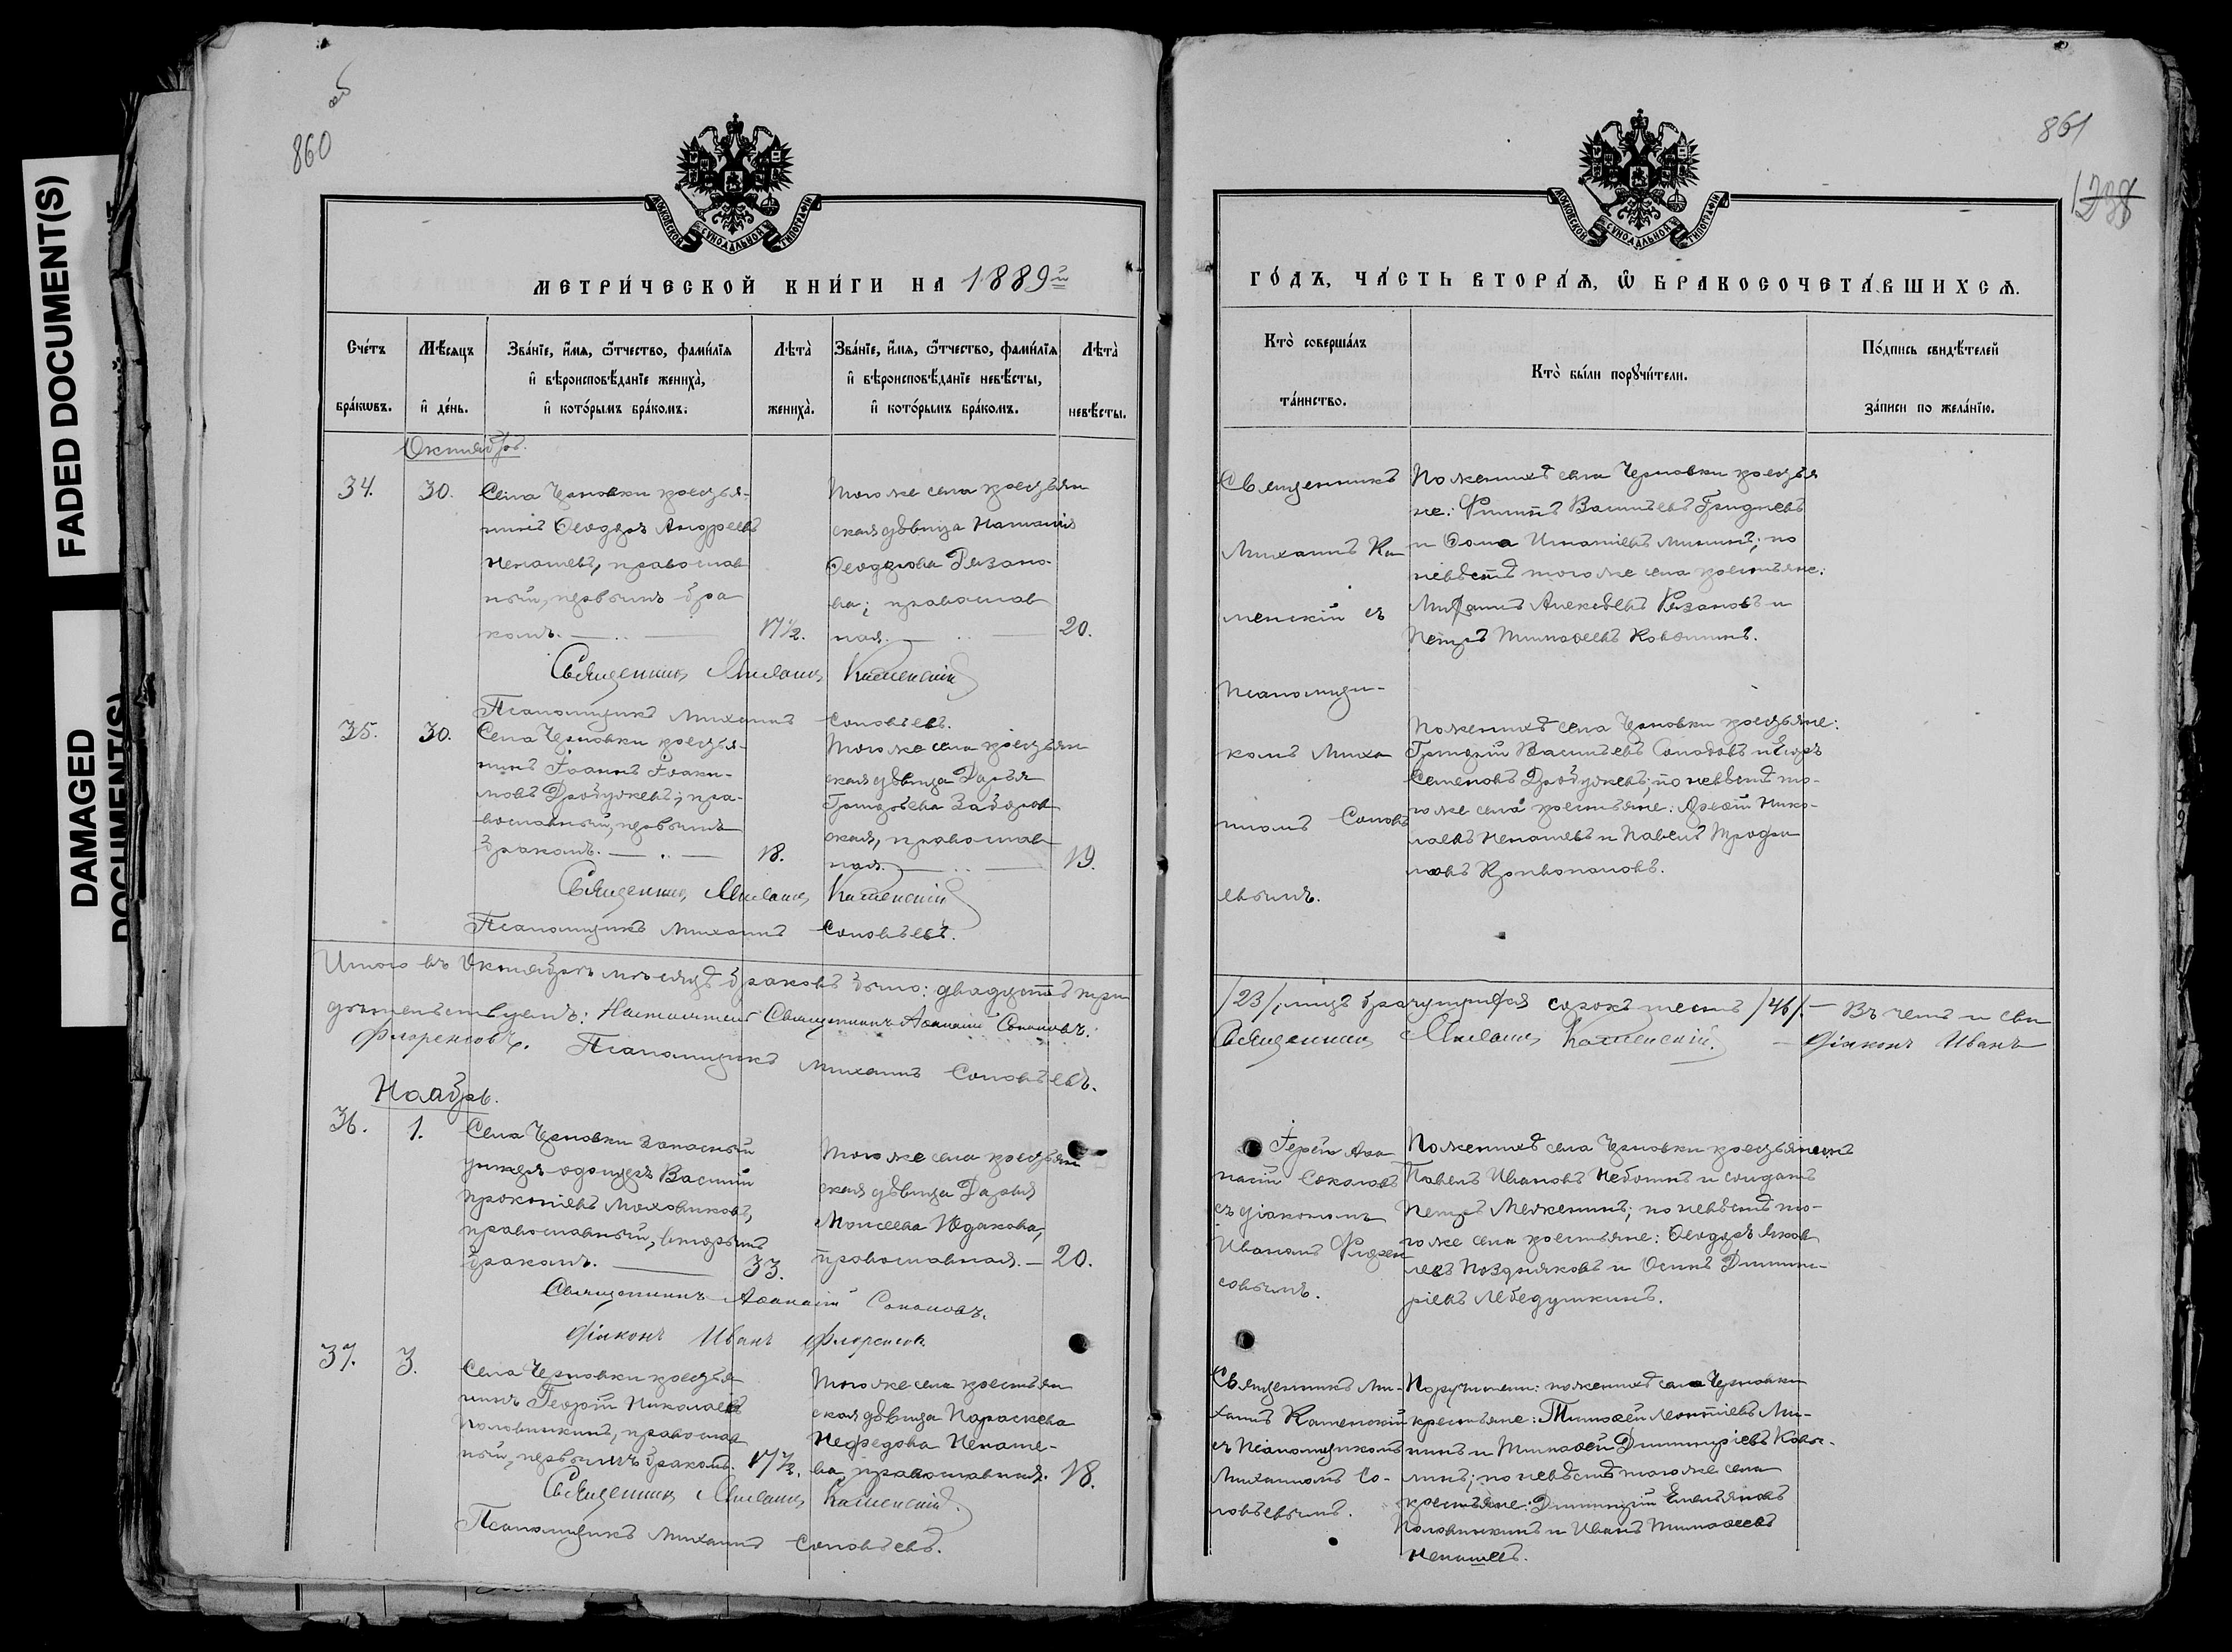 FADED DOCUMENT(S)
DAMAGED
DOCUMENT(S)
об
860
МОСКОВСКОЙ СѴНОДАЛЬНОЙ ТИПОГРАФІИ
МЕТРИ́ЧЕСКОЙ КНИ́ГИ НА 1889й
Сче́тъ
бра́кѡвъ.
Мѣ́сяцъ
и҆ де́нь.
Зва́нїе, и҆́мѧ, ѻ҆́тчество, фами́лїѧ
и҆ вѣроисповѣ́данїе жениха̀,
и҆ кото́рымъ бра́комъ.
Лѣта̀
жениха̀.
Зва́нїе, и҆́мѧ, ѻ҆́тчество, фами́лїѧ
и҆ вѣроисповѣ́данїе невѣ́сты,
и҆ кото́рымъ бра́комъ.
Лѣта̀
невѣ́сты.
Октябрь.
34.
30.
Села Черновки крестья-
нинъ Ѳеодоръ Андреевъ
Ненашевъ, православ
ный, первымъ бра
комъ.
17½.
Того же села крестьян
ская дѣвица Наталія
Ѳеодорова Рязано-
ва; православ
ная.
20.
Священникъ Михаилъ Каменскій
Псаломщикъ Михаилъ Соловьевъ.
35.
30.
Села Черновки крестья-
нинъ Іоаннъ Іоаки-
мовъ Дробужевъ; пра-
вославный, первымъ
бракомъ.
18.
Того же села крестьян
ская дѣвица Дарья
Григорьева Заборов
ская, православ
ная.
19.
Священникъ Михаилъ Каменскій
Псаломщикъ Михаилъ Соловьевъ.
Итого въ Октябрѣ мѣсяцѣ браковъ было: двадцать три
дѣтельствуемъ: Настоятель Священникъ Аѳанасій Соколовъ.
Флоренсовъ. Псаломщикъ Михаилъ Соловьевъ.
Ноябрь.
36.
1.
Села Черновки запасный
унтеръ-офицеръ Василій
Прокопіевъ Моховиковъ,
православный, вторымъ
бракомъ.
33.
Того же села крестьян
ская дѣвица Дарья
Моисеева Юдакова,
православная.
20.
Священникъ Аѳанасій Соколовъ.
Діаконъ Иванъ Флоренсовъ
37.
3.
Села Черновки крестья
нинъ Георгій Николаевъ
Половинкинъ, православ
ный, первымъ бракомъ.
17½.
Того же села крестьян
ская дѣвица Параскева
Меѳодова Ненаше-
ва, православная.
18.
Священникъ Михаилъ Каменскій.
Псаломщикъ Михаилъ Соловьевъ.
861
МОСКОВСКОЙ СѴНОДАЛЬНОЙ ТИПОГРАФІИ
ГО́ДЪ, ЧА́СТЬ ВТОРА́Ѧ, Ѽ БРАКОСОЧЕТА́ВШИХСѦ.
Кто̀ соверша́лъ
та́инство.
Кто̀ бы́ли порꙋчи́тели.
По́дпись свидѣ́телей
за́писи по жела́нїю.
Священникъ
Михаилъ Ка
менскій съ
псаломщи-
комъ Миха
иломъ Соловь
евымъ.
По женихѣ села Черновки крестья
не: Филипъ Васильевъ Гридневъ
и Ѳома Игнатіевъ Мининъ; по
невѣстѣ того же села крестьяне:
Михаилъ Алексѣевъ Рязановъ и
Петръ Тимоѳеевъ Ковылинъ.
По женихѣ села Черновки крестьяне:
Григорій Васильевъ Солодовъ и Егоръ
Семеновъ Дробужевъ; по невѣстѣ то-
го же села крестьяне: Арсеній Нико-
лаевъ Ненашевъ и Павелъ Трофи
мовъ Кривополовъ.
/23/, лицъ брачущихся сорокъ шесть /46/. — Въ чемъ и сви
Священникъ Михаилъ Каменскій. — Діаконъ Иванъ
Іерей Аѳа
насій Соколовъ
съ діакономъ
Иваномъ Флорен
совымъ.
По женихѣ села Черновки крестьянинъ
Павелъ Ивановъ Неботинъ и солдатъ
Петръ Меженинъ; по невѣстѣ то-
го же села крестьяне: Ѳеодоръ Яков
левъ Поздняковъ и Осипъ Димит-
ріевъ Лебедушкинъ.
Священникъ Ми-
хаилъ Каменскій
съ псаломщикомъ
Михаиломъ Со-
ловьевымъ.
Поручители: по женихѣ села Черновки
крестьяне: Тимоѳей Леонтіевъ Ми-
нинъ и Тимоѳей Димитріевъ Ковы-
линъ; по невѣстѣ того же села
крестьяне: Димитрій Емельяновъ
Половинкинъ и Иванъ Тимоѳеевъ
Ненашевъ.